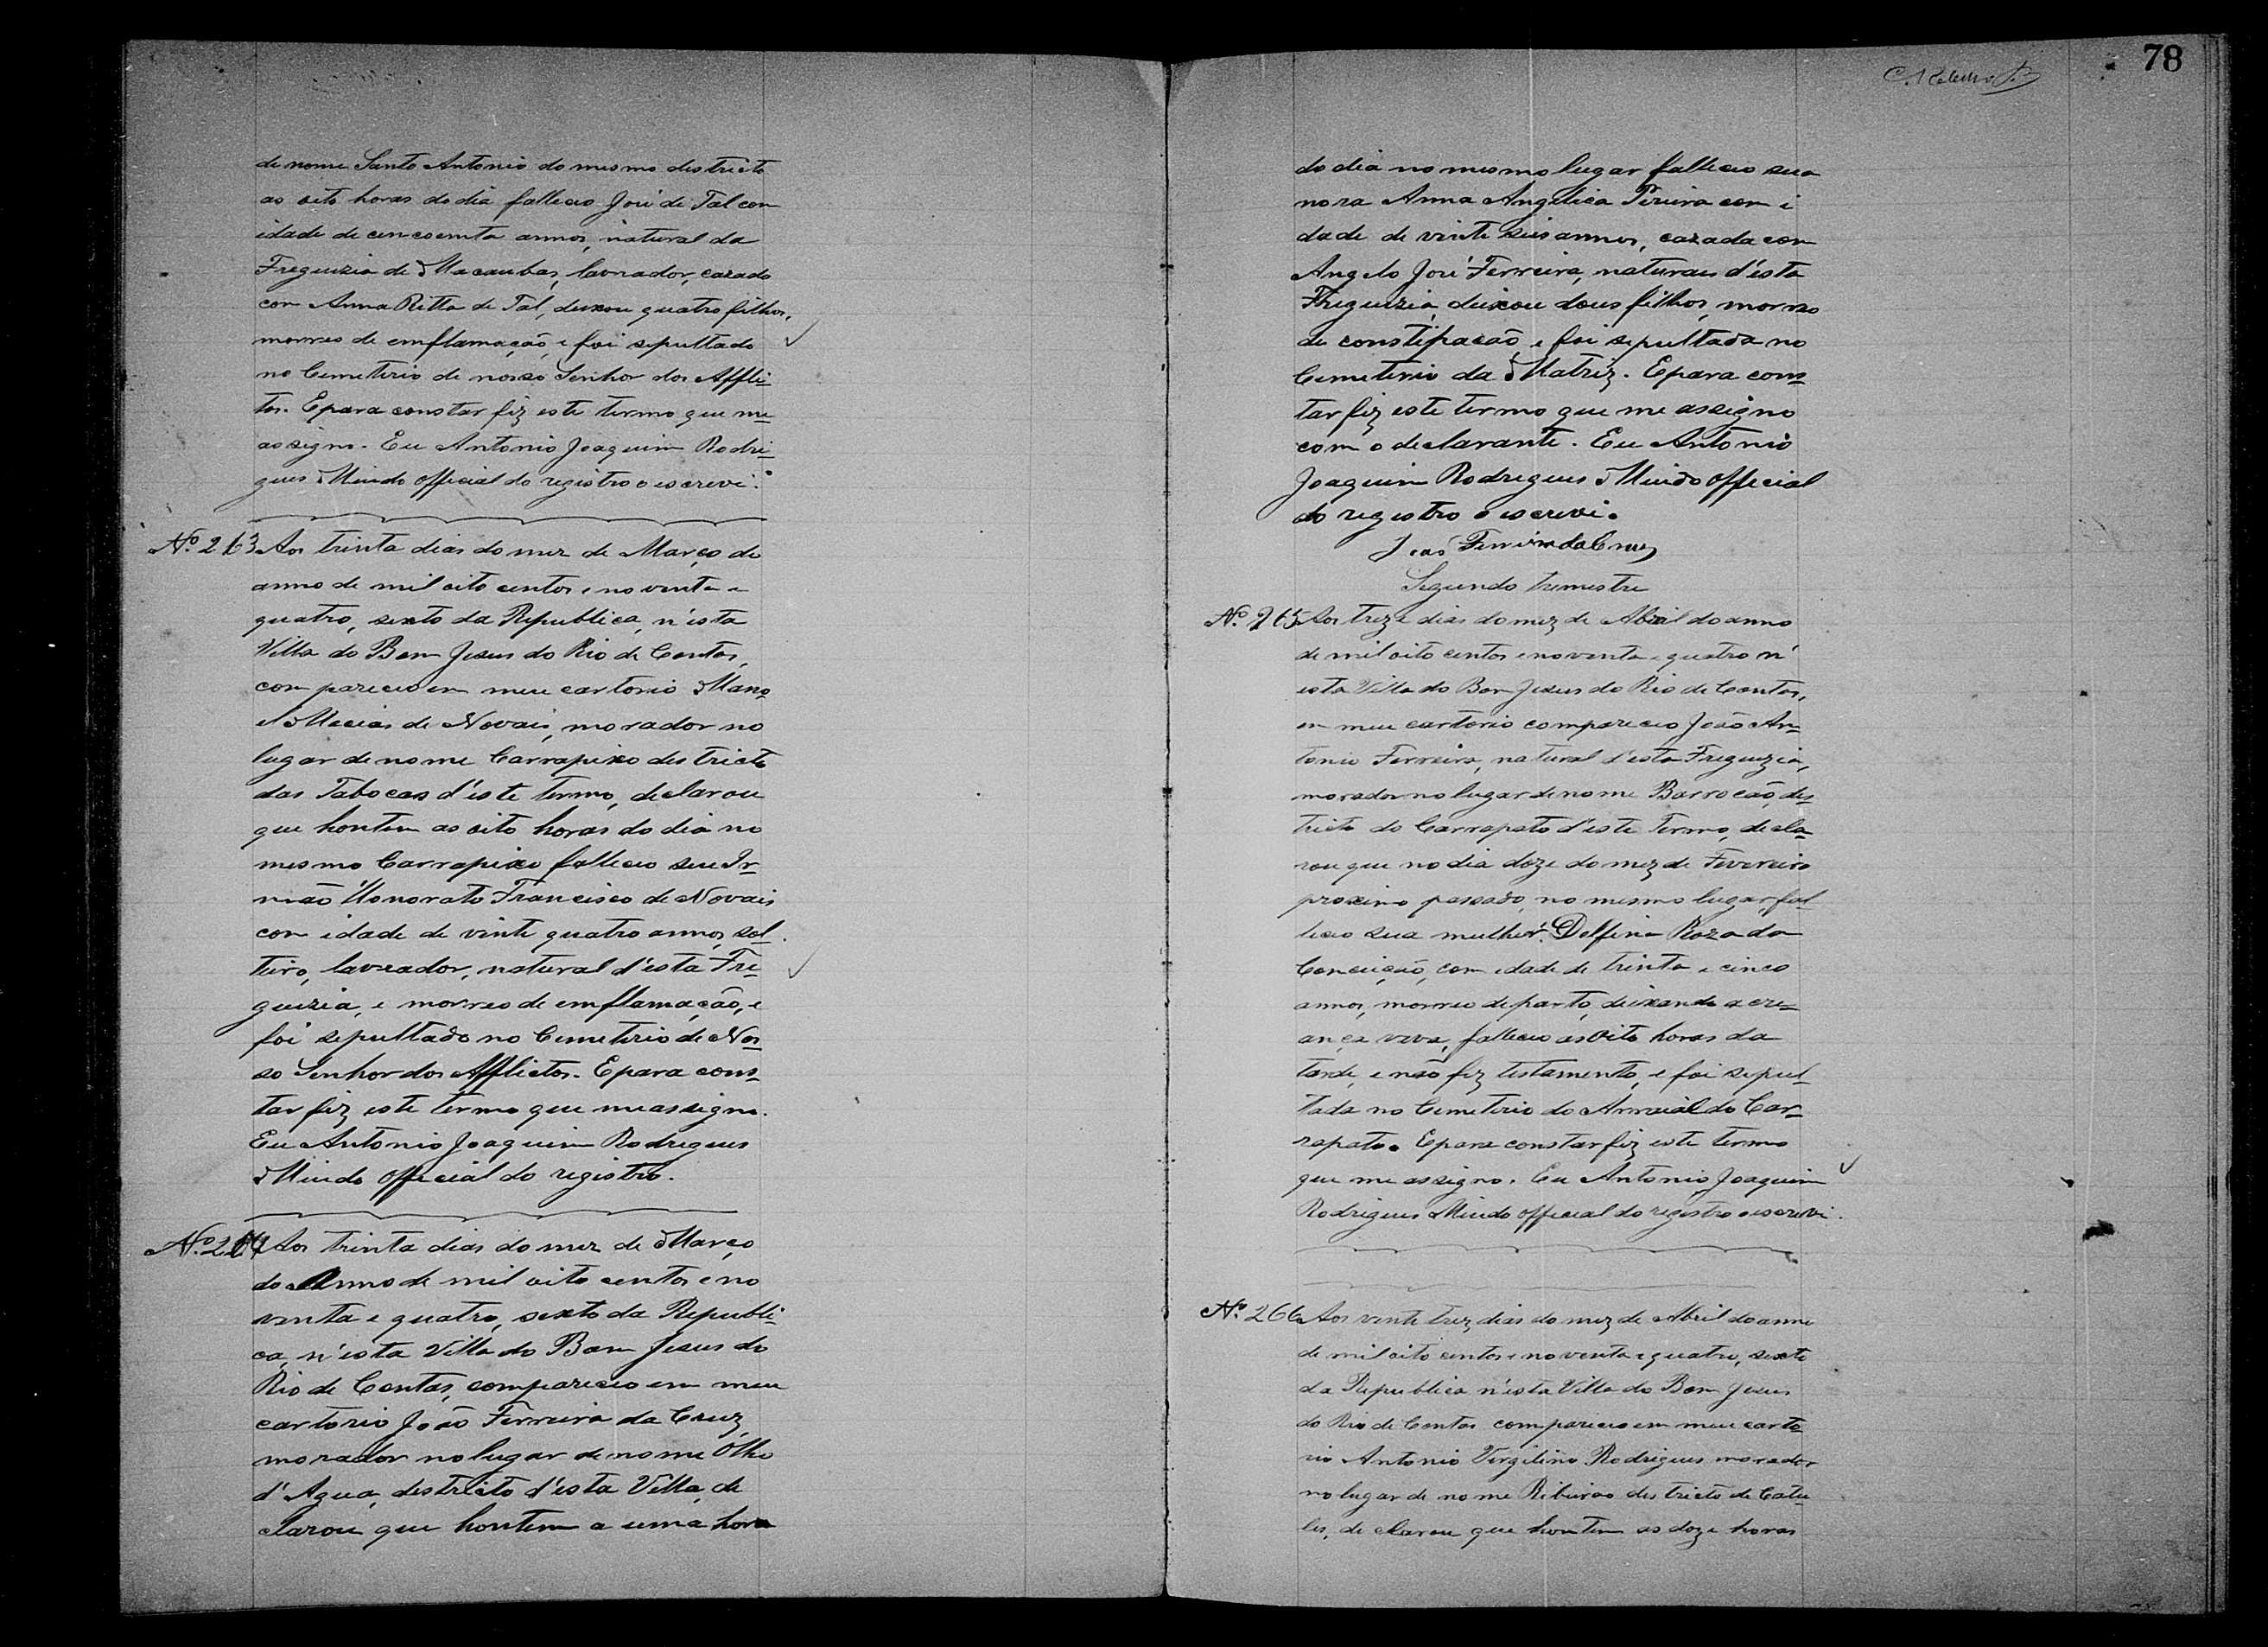 de nome Santo Antonio do mesmo destricto
as oito horas do dia falleceo José de Tal com
idade de cencoenta annos, natural da
Freguizia de Macaubas, lavrador, cazado
com Anna Ritta de Tal, deixou quatro filhos,
morreo de emflamação, e foi sepultado
no Cemeterio de nosso Senhor dos Affli-
tos. E para constar fiz este termo que me
assigno. Eu Antonio Joaquim Rodri-
gues Meudo official do registro o escrevi.
Nº. 263 Aos trinta dias do mez de Março do
anno de mil oito centos e noventa e
quatro, sexto da Republica, n'esta
Villa do Bom Jesus do Rio de Contas,
compareceo em meu cartorio Mano-
el Mecias de Novais, morador no
lugar de nome Carrapixo destricto
das Tabocas d'este termo, declarou
que hontem as oito horas do dia no
mesmo Carrapixo falleceo seu Ir-
mão Honorato Francisco de Novais
com idade de vinte quatro annos, sol-
teiro, lavrador, natural d'esta Fre-
guizia, e morreo de emflamação, e
foi sepultado no Cemeterio de Nos-
so Senhor dos Afflictos. E para cons-
tar fiz este termo que me assigno.
Eu Antonio Joaquim Rodrigues
Meudo official do registro.
Nº. 264 Aos trinta dias do mez de Março
do Anno de mil oito centos e no
venta e quatro, sexto da Republi-
ca, n'esta Villa do Bom Jesus do
Rio de Contas, compareceo em meu
cartorio João Ferreira da Cruz,
morador no lugar de nome Olho
d'Agua, destricto d'esta Villa, de
clarou que hontem a uma hora
78
do dia no mesmo lugar falleceo sua
nora Anna Angelica Pereira com i
dade de vinte seis annos, cazada com
Angelo José Ferreira, naturaes d'esta
Freguizia, deixou dous filhos, morreo
de constipação, e foi sepultada no
Cemeterio da Matriz. E para cons-
tar fiz este termo que me assigno
com o declarante. Eu Antonio
Joaquim Rodrigues Meudo official
do registro o escrevi.
João Ferreira da Cruz
Segundo tremestre
Nº. 265 Aos treze dias do mez de Abril do anno
de mil oito centos e noventa e quatro n'
esta Villa do Bom Jesus do Rio de Contas,
em meu cartorio compareceo João An-
tonio Ferreira, natural d'esta Freguezia,
morador no lugar de nome Barrocão, des-
tricto do Carrapato d'este Termo, decla-
rou que no dia doze do mez de Fevereiro
proximo passado, no mesmo lugar, fal-
leceo sua mulher Delfina Roza da
Conceição, com edade de trinta e cinco
annos, morreo de parto, deixando a cre-
ança viva, falleceo as oito horas da
tarde, e não fiz testamento, e foi sepul-
tada no Cemeterio do Arraial do Car-
rapato. E para constar fiz este termo
que me assigno. Eu Antonio Joaquim
Rodrigues Meudo official do registro o escrevi.
Nº. 266 Aos vinte trez dias do mez de Abril do anno
de mil oito centos e noventa e quatro, sexto
da Republica n'esta Villa do Bom Jesus
do Rio de Contas compareceo em meu carto-
rio Antonio Virgilino Rodrigues morador
no lugar de nome Ribeirao destricto de Catu-
les, declarou que hontem as doze horas